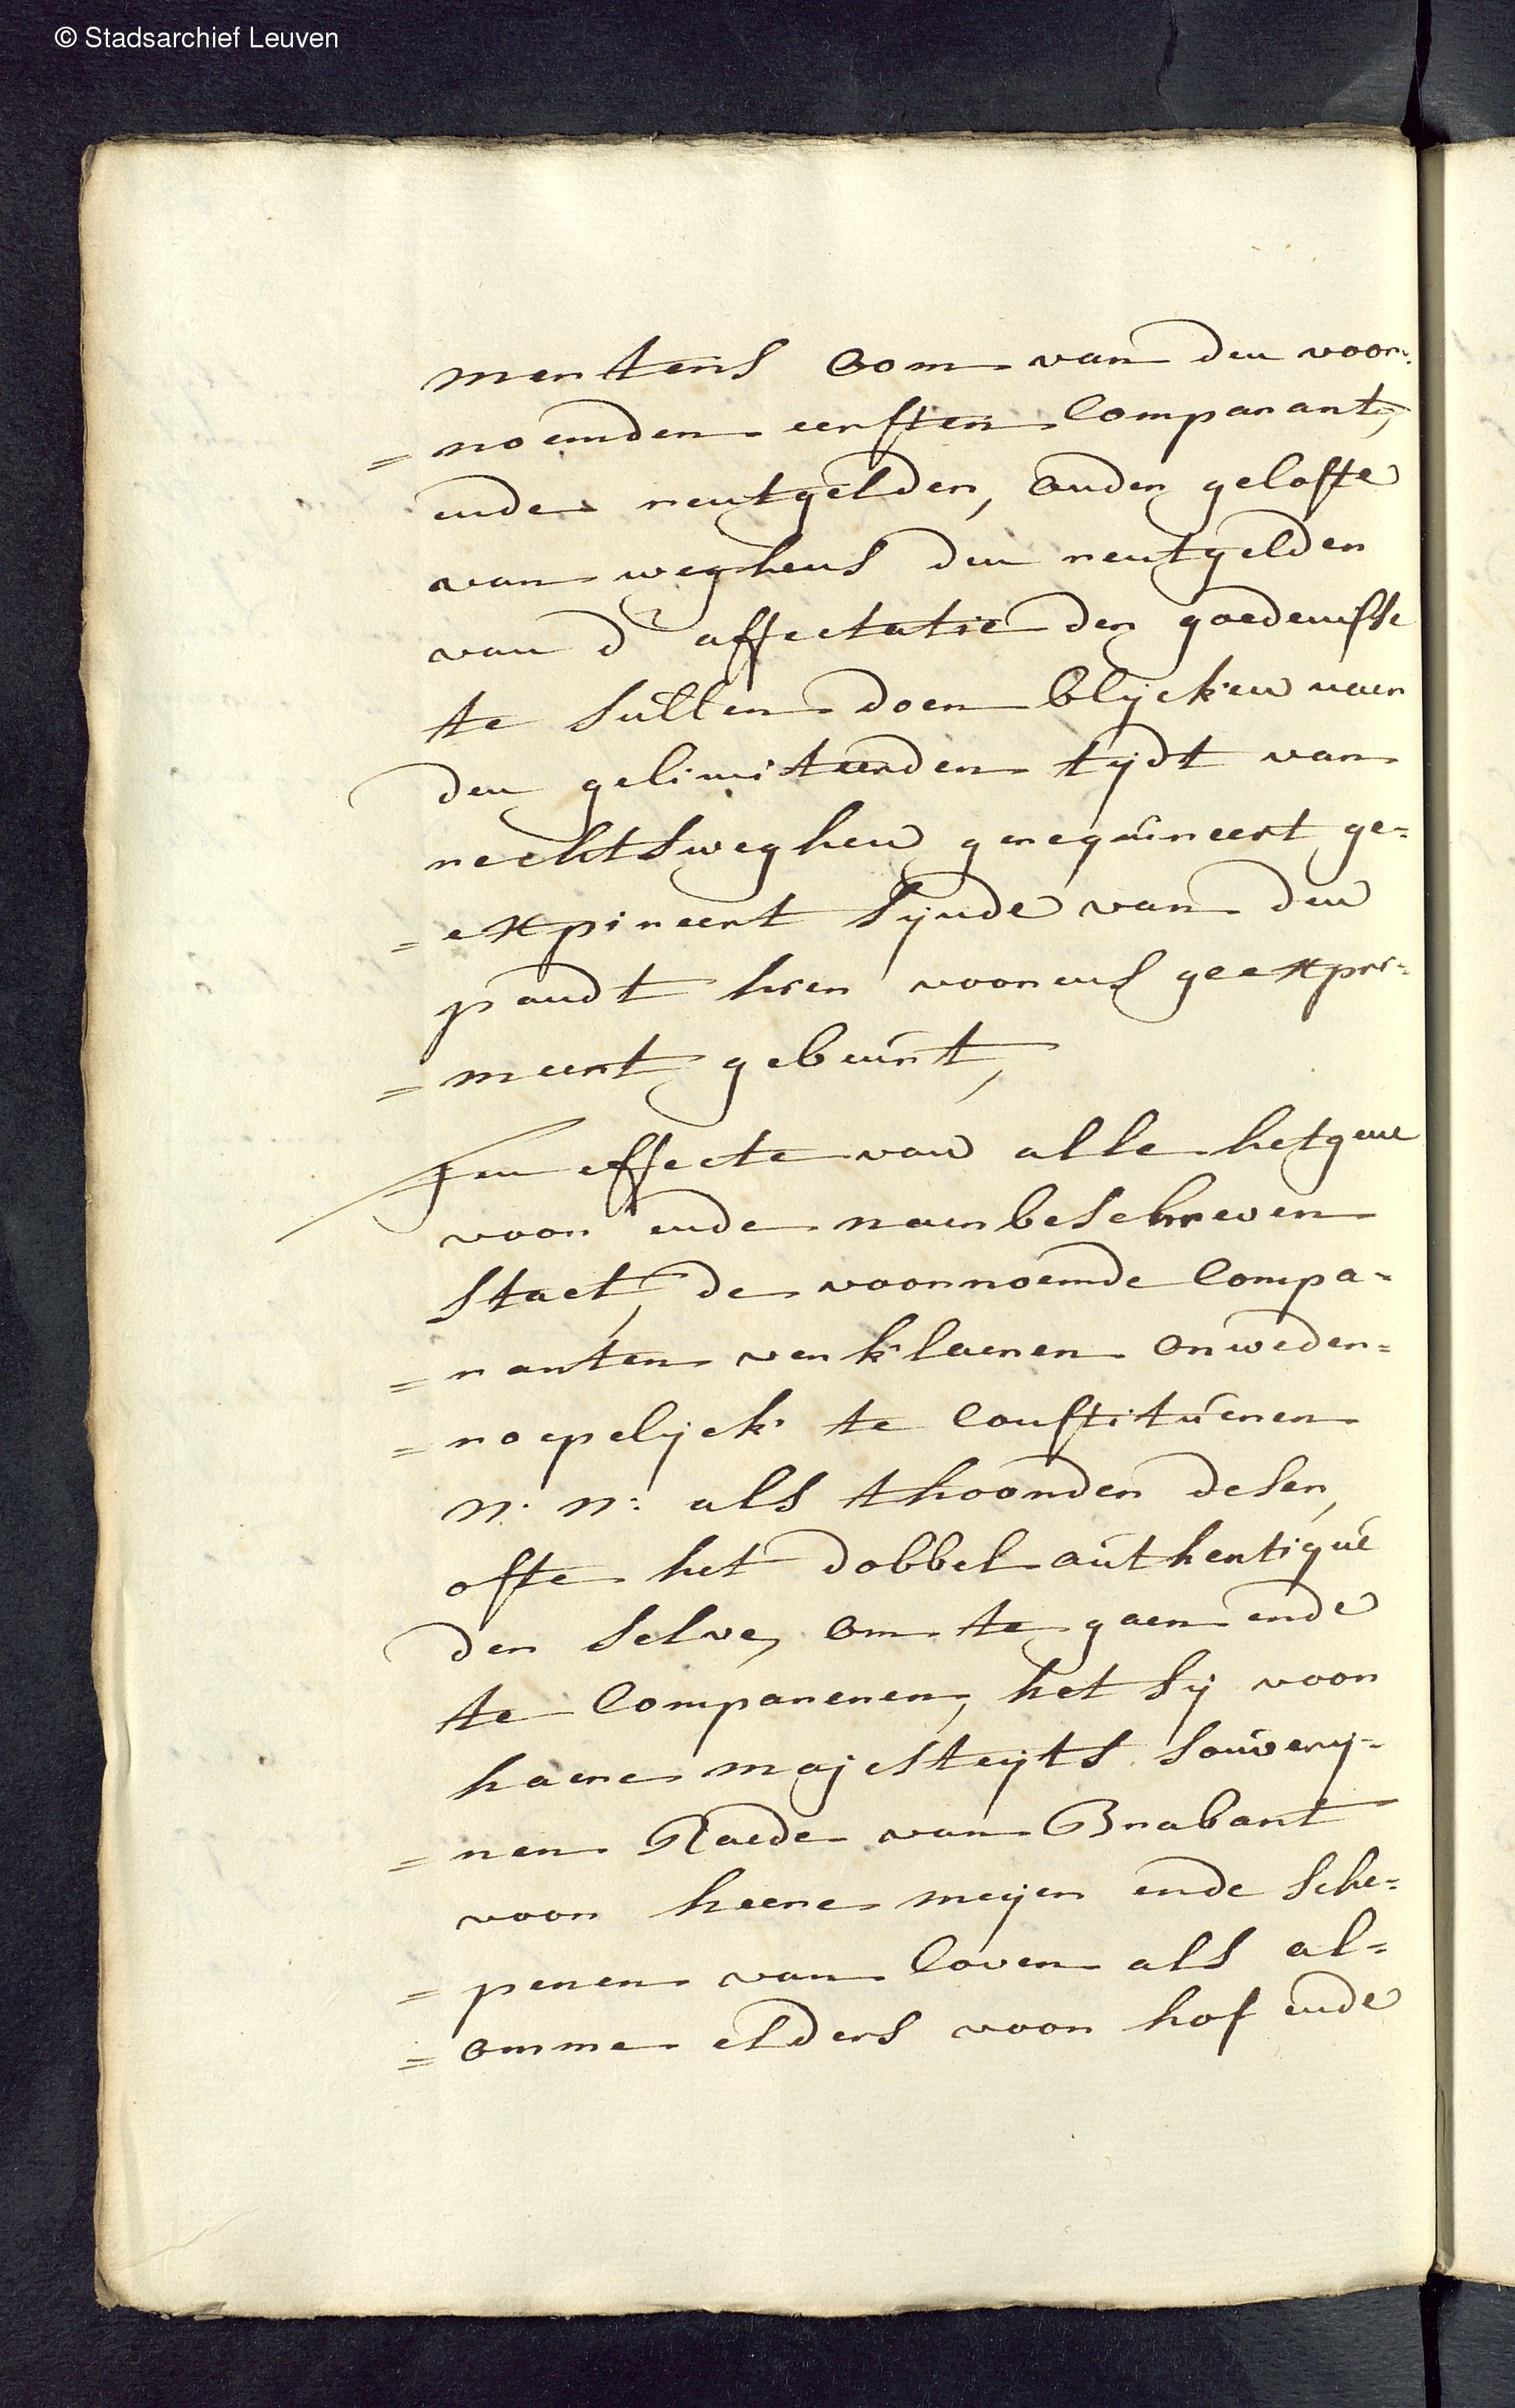 © Stadsarchief Leuven
mertens oom van den voor-
= noemden eersten Comparant,
ende rentgelder, onder gelofte
van weghens den rentgelder
van d'affectatie der goedenisse
te sullen doen blijcken naer
den gelimiteerden tijdt van
rechtsweghen gerequireert ge=
= expireert sijnde van den
pandt hier vooren geexpri=
= meert gebeurt,
Ten effecte van alle hetgene
voor ende naerbeschreven
staet, de voornoemde Compa=
= ranten verklaeren onweder=
= roepelijck te Constitueren
N: N: als thoonder deser,
ofte het dobbel authentique
der selve, om te gaen ende
te Compareren, het sij voor
haere majesteijts souverij=
= nen Raede van Brabant
voor heere meijer ende sche=
= penen van Loven als al=
= omme elders voor hof ende